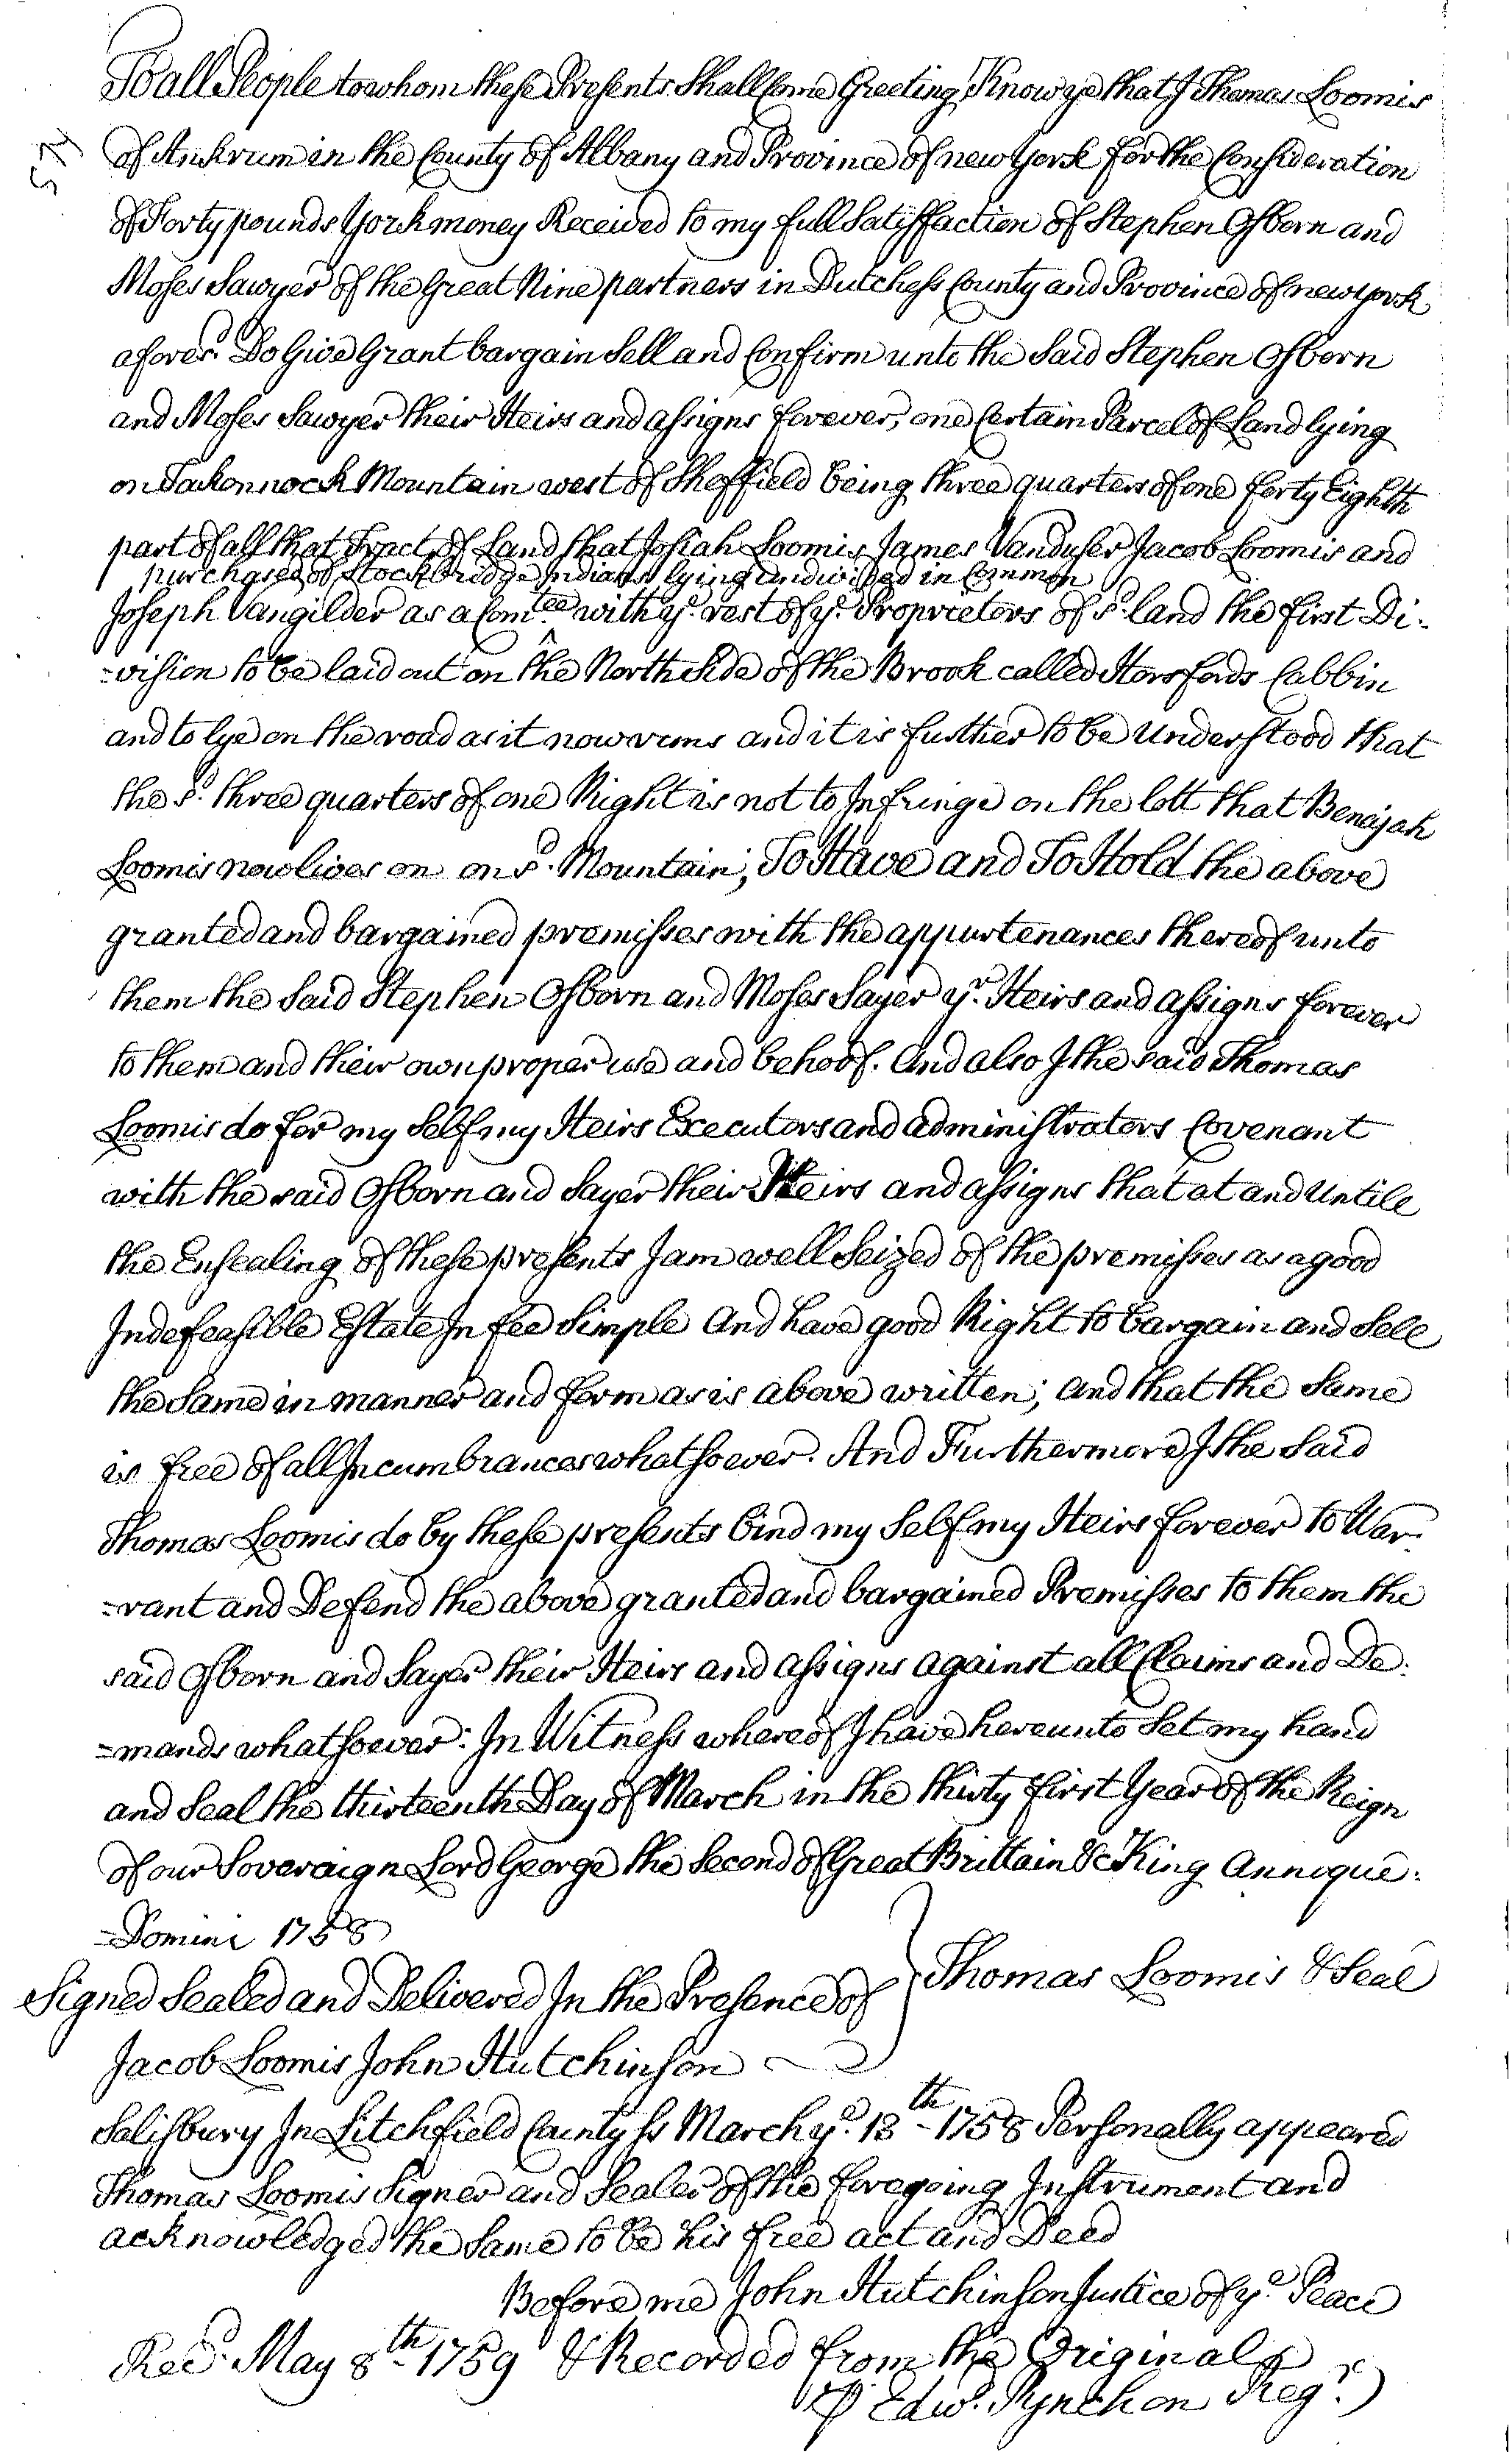 To all People to whom these Presents Shall Come Greeting, Know ye that I Thomas Loomis
574
of Ankrum in the County of Albany and Province of new York for the Consideration
of Forty pounds York money Received to my full Satisffaction of Stephen Osborn and
Moses Sawyer of the Great Nine partners in Dutchess County and Province of new york
afores.d Do Give Grant bargain Sell and Confirm unto the Said Stephen Osborn
and Moses Sawyer their Heirs and assigns forever, one Certain Parcel of Land lying
on Takonnock Mountain west of Sheffield being three quarters of one forty Eighth
part of all that Tract of Land that Josiah Loomis James Vanduser Jacob Loomis and
purchased of Stockbridge Indians lying undivided in Common
Joseph Vangilder as a Com.tee ^ with y.e rest of y.e Proprietors of s.d land the first Di-
-vision to be laid out on the North Side of the Brook called Horsfords Cabbin
and to lye on the road as it now runs and it is further to be Understood that
the s.d three quarters of one Right is not to Infringe on the lott that Benajah
Loomis now lives on on s.d Mountain; To Have and To Hold the above
granted and bargained premisses with the appurtenances thereof unto
them the Said Stephen Osborn and Moses Sayer y.r Heirs and assigns forever
to them and their own proper use and behoof. And also I the said Thomas
Loomis do for my Self my Heirs Executors and administrators Covenant
with the said Osborn and Sayer their Heirs and assigns that at and Untill
the Ensealing of these presents I am well Seized of the premisses as a good
Indefeasible Estate In fee Simple And have good Right to bargain and Sell
the Same in manner and form as is above written; and that the Same
is free of all Incumbrances whatsoever. And Furthermore I the Said
Thomas Loomis do by these presents bind my Self my Heirs forever to War-
-rant and Defend the above granted and bargained Premisses to them the
said Osborn and Sayer their Heirs and assigns against all Claims and De-
-mands whatsoever: In Witness whereof I have hereunto Set my hand
and Seal the thirteenth Day of March in the thirty first Year of the Reign
of our Soveraign Lord George the Second of Great Brittain &c King Annoque-
-Domini 1758
Signed Sealed and Delivered In the Presence of } Thomas Loomis & Seal
Jacob Loomis John Hutchinson
Salisbury In Litchfield County Ss March y.e 13th- 1758 Personally appeared
Thomas Loomis Signer and Sealer of the foregoing Instrument and
acknowledged the Same to be his free act and Deed
Before me John Hutchinson Justice of y.e Peace
Rec.d May 8th- 1759 & Recorded from the Original
P Edw.d Pynchon Reg.r